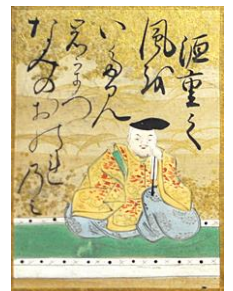 源重之
風を
いたみ
岩うつ
なみのおのれのみ